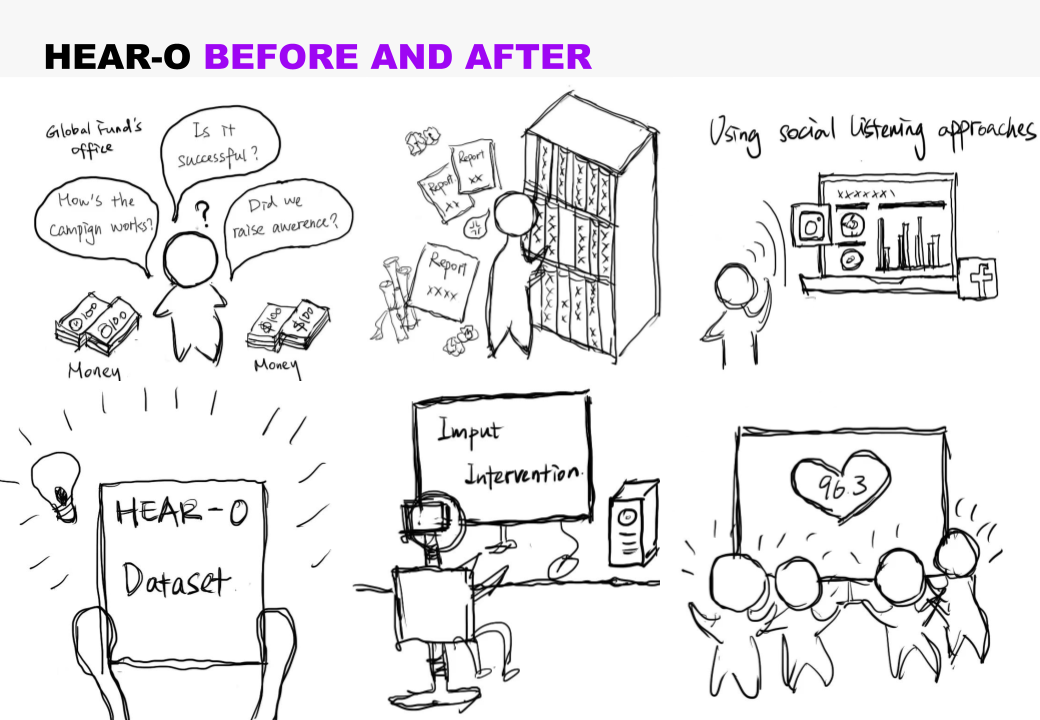 HEAR-O BEFORE AND AFTER
Global Fund's
office
Is it
successful?
How's the
campign works?
?
Did we
raise awerence?
$100
$100
Money
$100
$100
Money
Report
xx
Report
xx
Report
xxxx
Using social listening approaches
xxxxxx
f
HEAR-O
Dataset
Imput
Intervention.
96.3